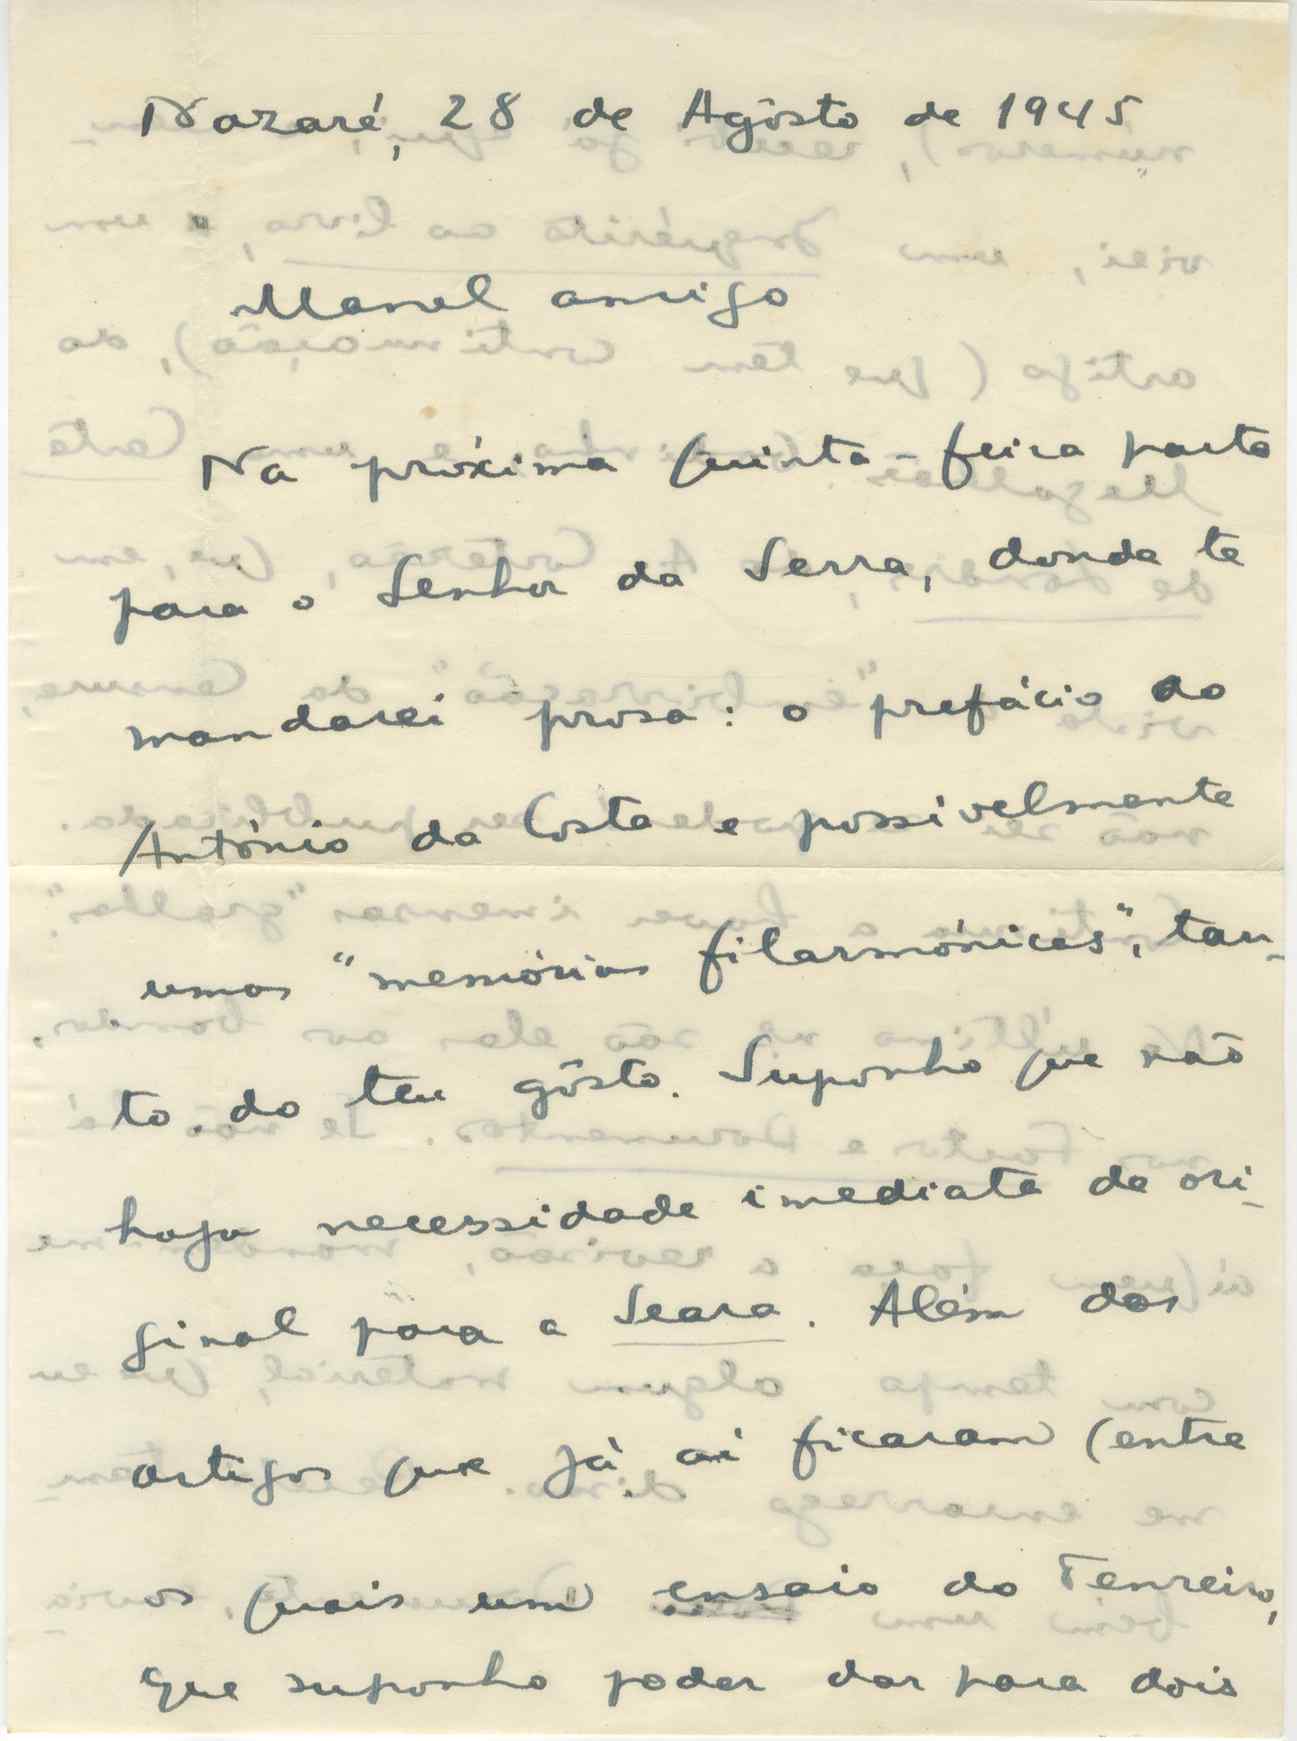 Nazaré, 28 de Agôsto de 1945
Manel amigo
Na próxima quinta-feira parto
para o Senhor da Serra, donde te
mandarei prosa: o prefácio do
António da Costa e possivelmente
umas "memórias filarmónicas", tan-
to do teu gôsto. Suponho que não
haja necessidade imediata de ori-
ginal para a Seara. Além dos
artigos que já aí ficaram (entre
os quais um ensaio do Tenreiro,
que suponho poder dar para dois